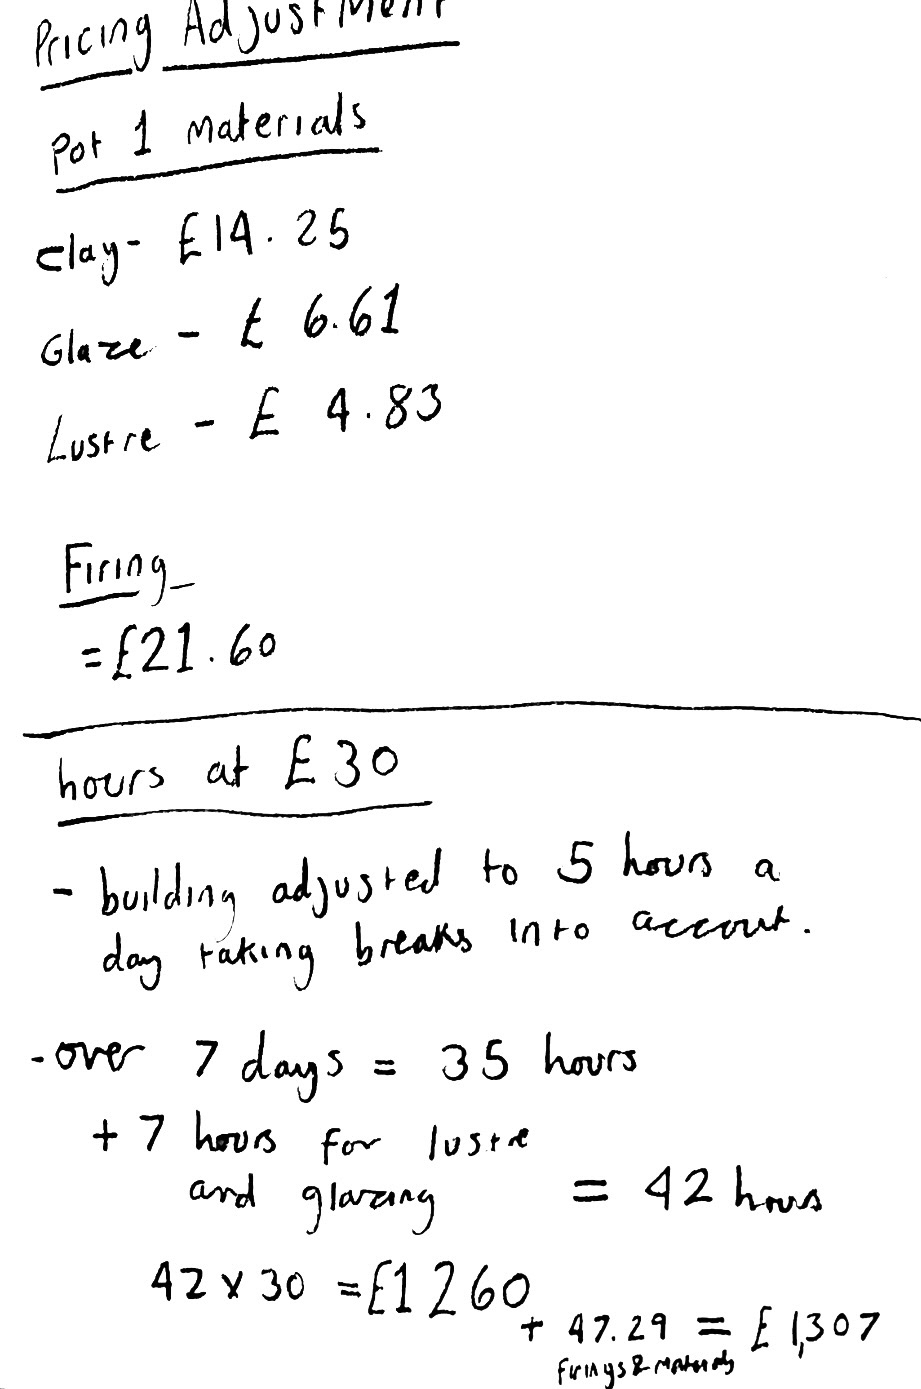 Pricing Adjustment
Pot 1 materials
Clay - £14.25
Glaze - £ 6.61
Lustre - £ 4.83
Firing
= £21.60
hours at £30
- building adjusted to 5 hours a
day taking breaks into account.
- over 7 days = 35 hours
+ 7 hours for lustre
and glazing = 42 hours
42 x 30 = £1260
+ 47.29 = £1,307
firings & materials